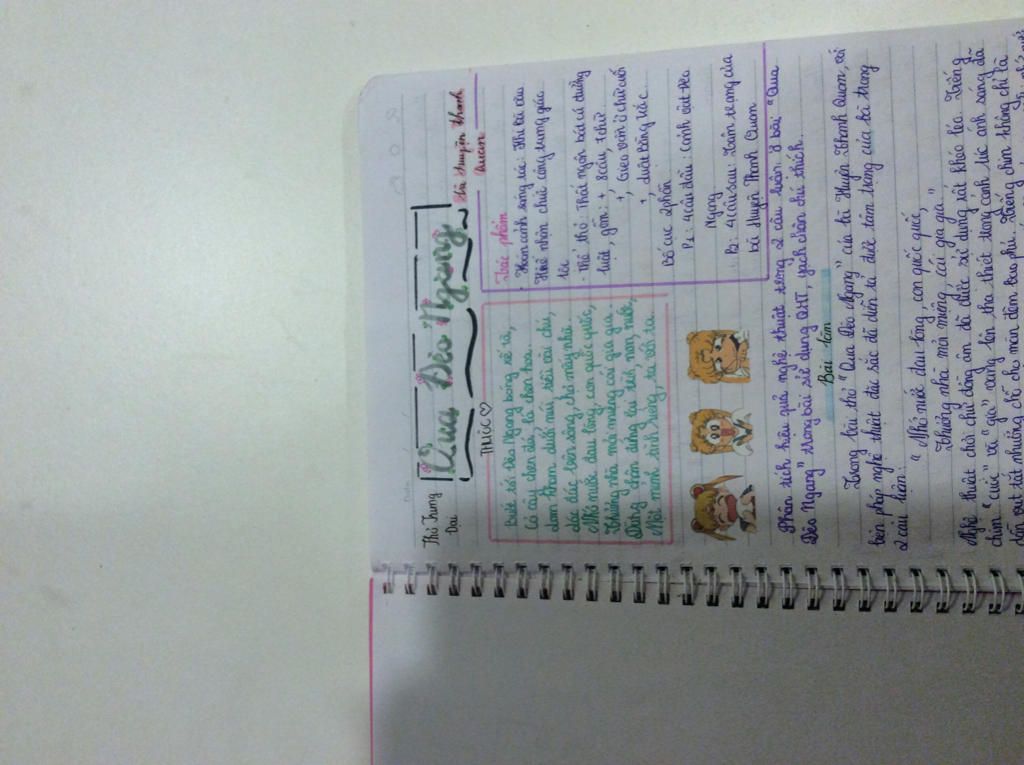 Thơ Trung
Đại
Qua Đèo Ngang
Bà Huyện Thanh
Quan
THUỘC ♡
Bước tới Đèo Ngang bóng xế tà,
Cỏ cây chen đá, lá chen hoa.
Lom khom dưới núi, tiều vài chú,
Lác đác bên sông, chợ mấy nhà.
Nhớ nước đau lòng, con quốc quốc,
Thương nhà mỏi miệng cái gia gia.
Dừng chân đứng lại trời, non, nước,
Một mảnh tình riêng, ta với ta.
Tác phẩm
- Hoàn cảnh sáng tác: Khi bà vào
Huế nhận chức cung trung giáo
tập
- Thể thơ: Thất ngôn bát cú đường
luật, gồm: + 8 câu, 7 chữ
+, Gieo vần ở chữ cuối
+, Luật bằng trắc...
Bố cục 2 phần
P1: 4 câu đầu: cảnh vật đèo
Ngang
P2: 4 câu sau: Tâm trạng của
bà Huyện Thanh Quan
Phân tích hiệu quả nghệ thuật trong 2 câu luận ở bài "Qua
Đèo Ngang" trong bài sử dụng QHT, gạch chân chú thích.
Bài làm
Trong bài thơ "Qua Đèo Ngang" của bà Huyện Thanh Quan, với
biện pháp nghệ thuật đặc sắc đã diễn tả được tâm trạng của bà trong
2 câu luận:
"Nhớ nước đau lòng, con quốc quốc,
Thương nhà mỏi miệng, cái gia gia."
Nghệ thuật chơi chữ đồng âm đã được sử dụng rất khéo léo. Tiếng
chim "cuốc" và "gia" vang lên tha thiết trong cảnh lúc ánh sáng đã
dần vụt tắt nhường chỗ cho màn đêm bao phủ. Tiếng chim không chỉ là